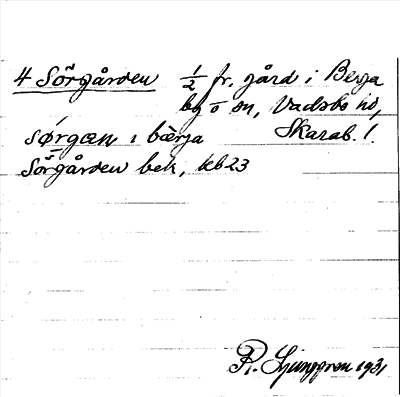 4 Sörgården ½ fr. gård i Berga
by o sn, Vadsbo hd,
sørgæn i bærja Skarab. l.
Sörgården bek, kb 23
R. Ljunggren 1931